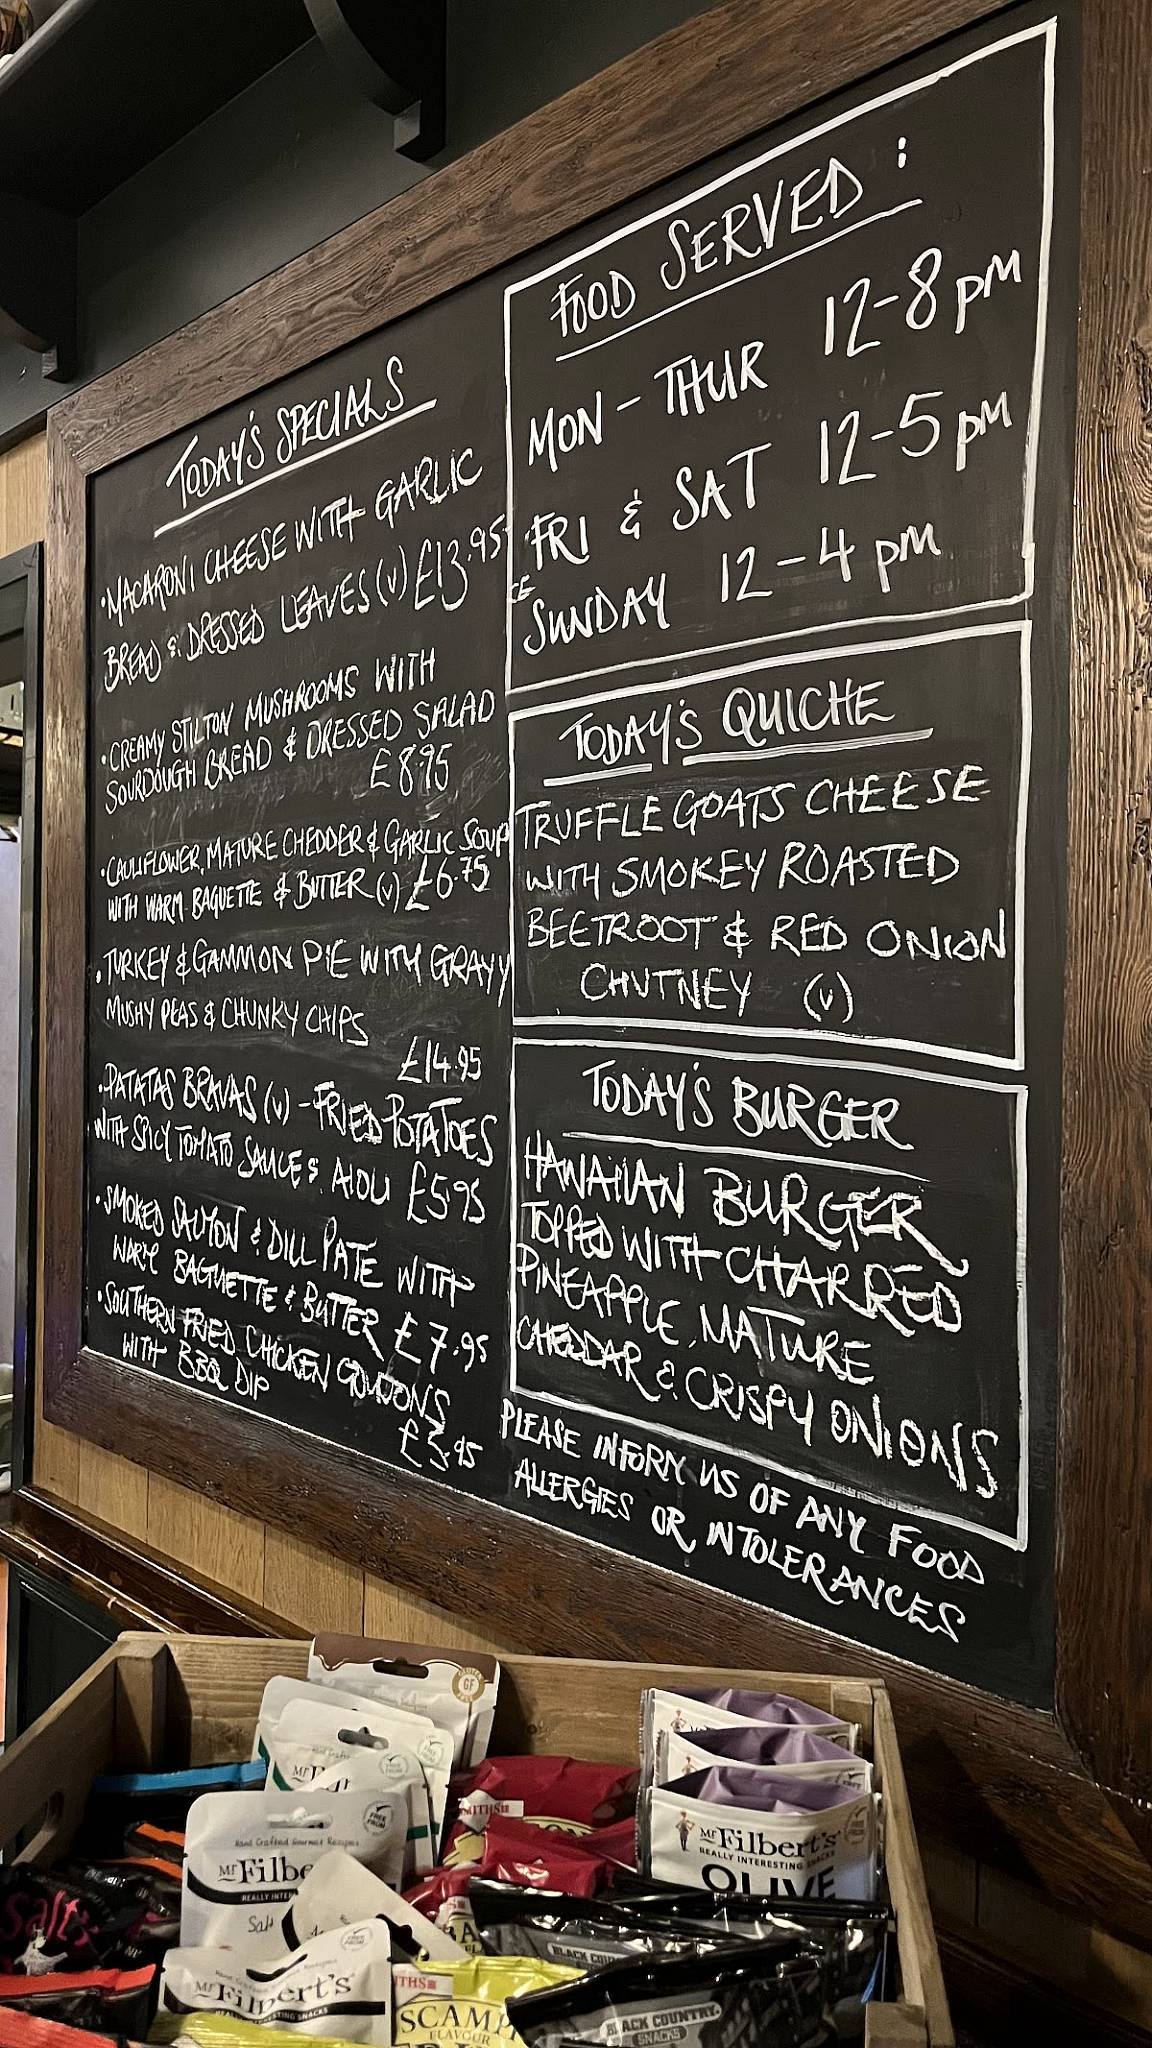 TODAY'S SPECIALS
• MACARONI CHEESE WITH GARLIC
BREAD & DRESSED LEAVES (V) £13.95
• CREAMY STILTON MUSHROOMS WITH
SOURDOUGH BREAD & DRESSED SALAD
£8.95
• CAULIFLOWER, MATURE CHEDDER & GARLIC SOUP
WITH WARM BAGUETTE & BUTTER (V) £6.75
• TURKEY & GAMMON PIE WITH GRAVY
MUSHY PEAS & CHUNKY CHIPS
£14.95
• PATATAS BRAVAS (V) - FRIED POTATOES
WITH SPICY TOMATO SAUCE & AIOLI £5.95
• SMOKED SALMON & DILL PATE WITH
WARM BAGUETTE & BUTTER £7.95
• SOUTHERN FRIED CHICKEN GOUJONS
WITH BBQ DIP
£3.95
FOOD SERVED :
MON - THUR 12-8pm
FRI & SAT 12-5pm
SUNDAY 12-4pm
TODAY'S QUICHE
TRUFFLE GOATS CHEESE
WITH SMOKEY ROASTED
BEETROOT & RED ONION
CHUTNEY (V)
TODAY'S BURGER
HAWAIIAN BURGER
TOPPED WITH CHARRED
PINEAPPLE, MATURE
CHEDDAR & CRISPY ONIONS
PLEASE INFORM US OF ANY FOOD
ALLERGIES OR INTOLERANCES
GF
FREE FROM
Hand Crafted Gourmet Recipes
Mr Filbe
REALLY INTER
Salt
Mr Filbert's
REALLY INTERESTING SNACKS
OLIVE
Mr Filbert's
REALLY INTERESTING SNACKS
SMITHS
Salty
SCAMPI
FLAVOUR
BLACK COUNTRY
SNACKS
BLACK COUN